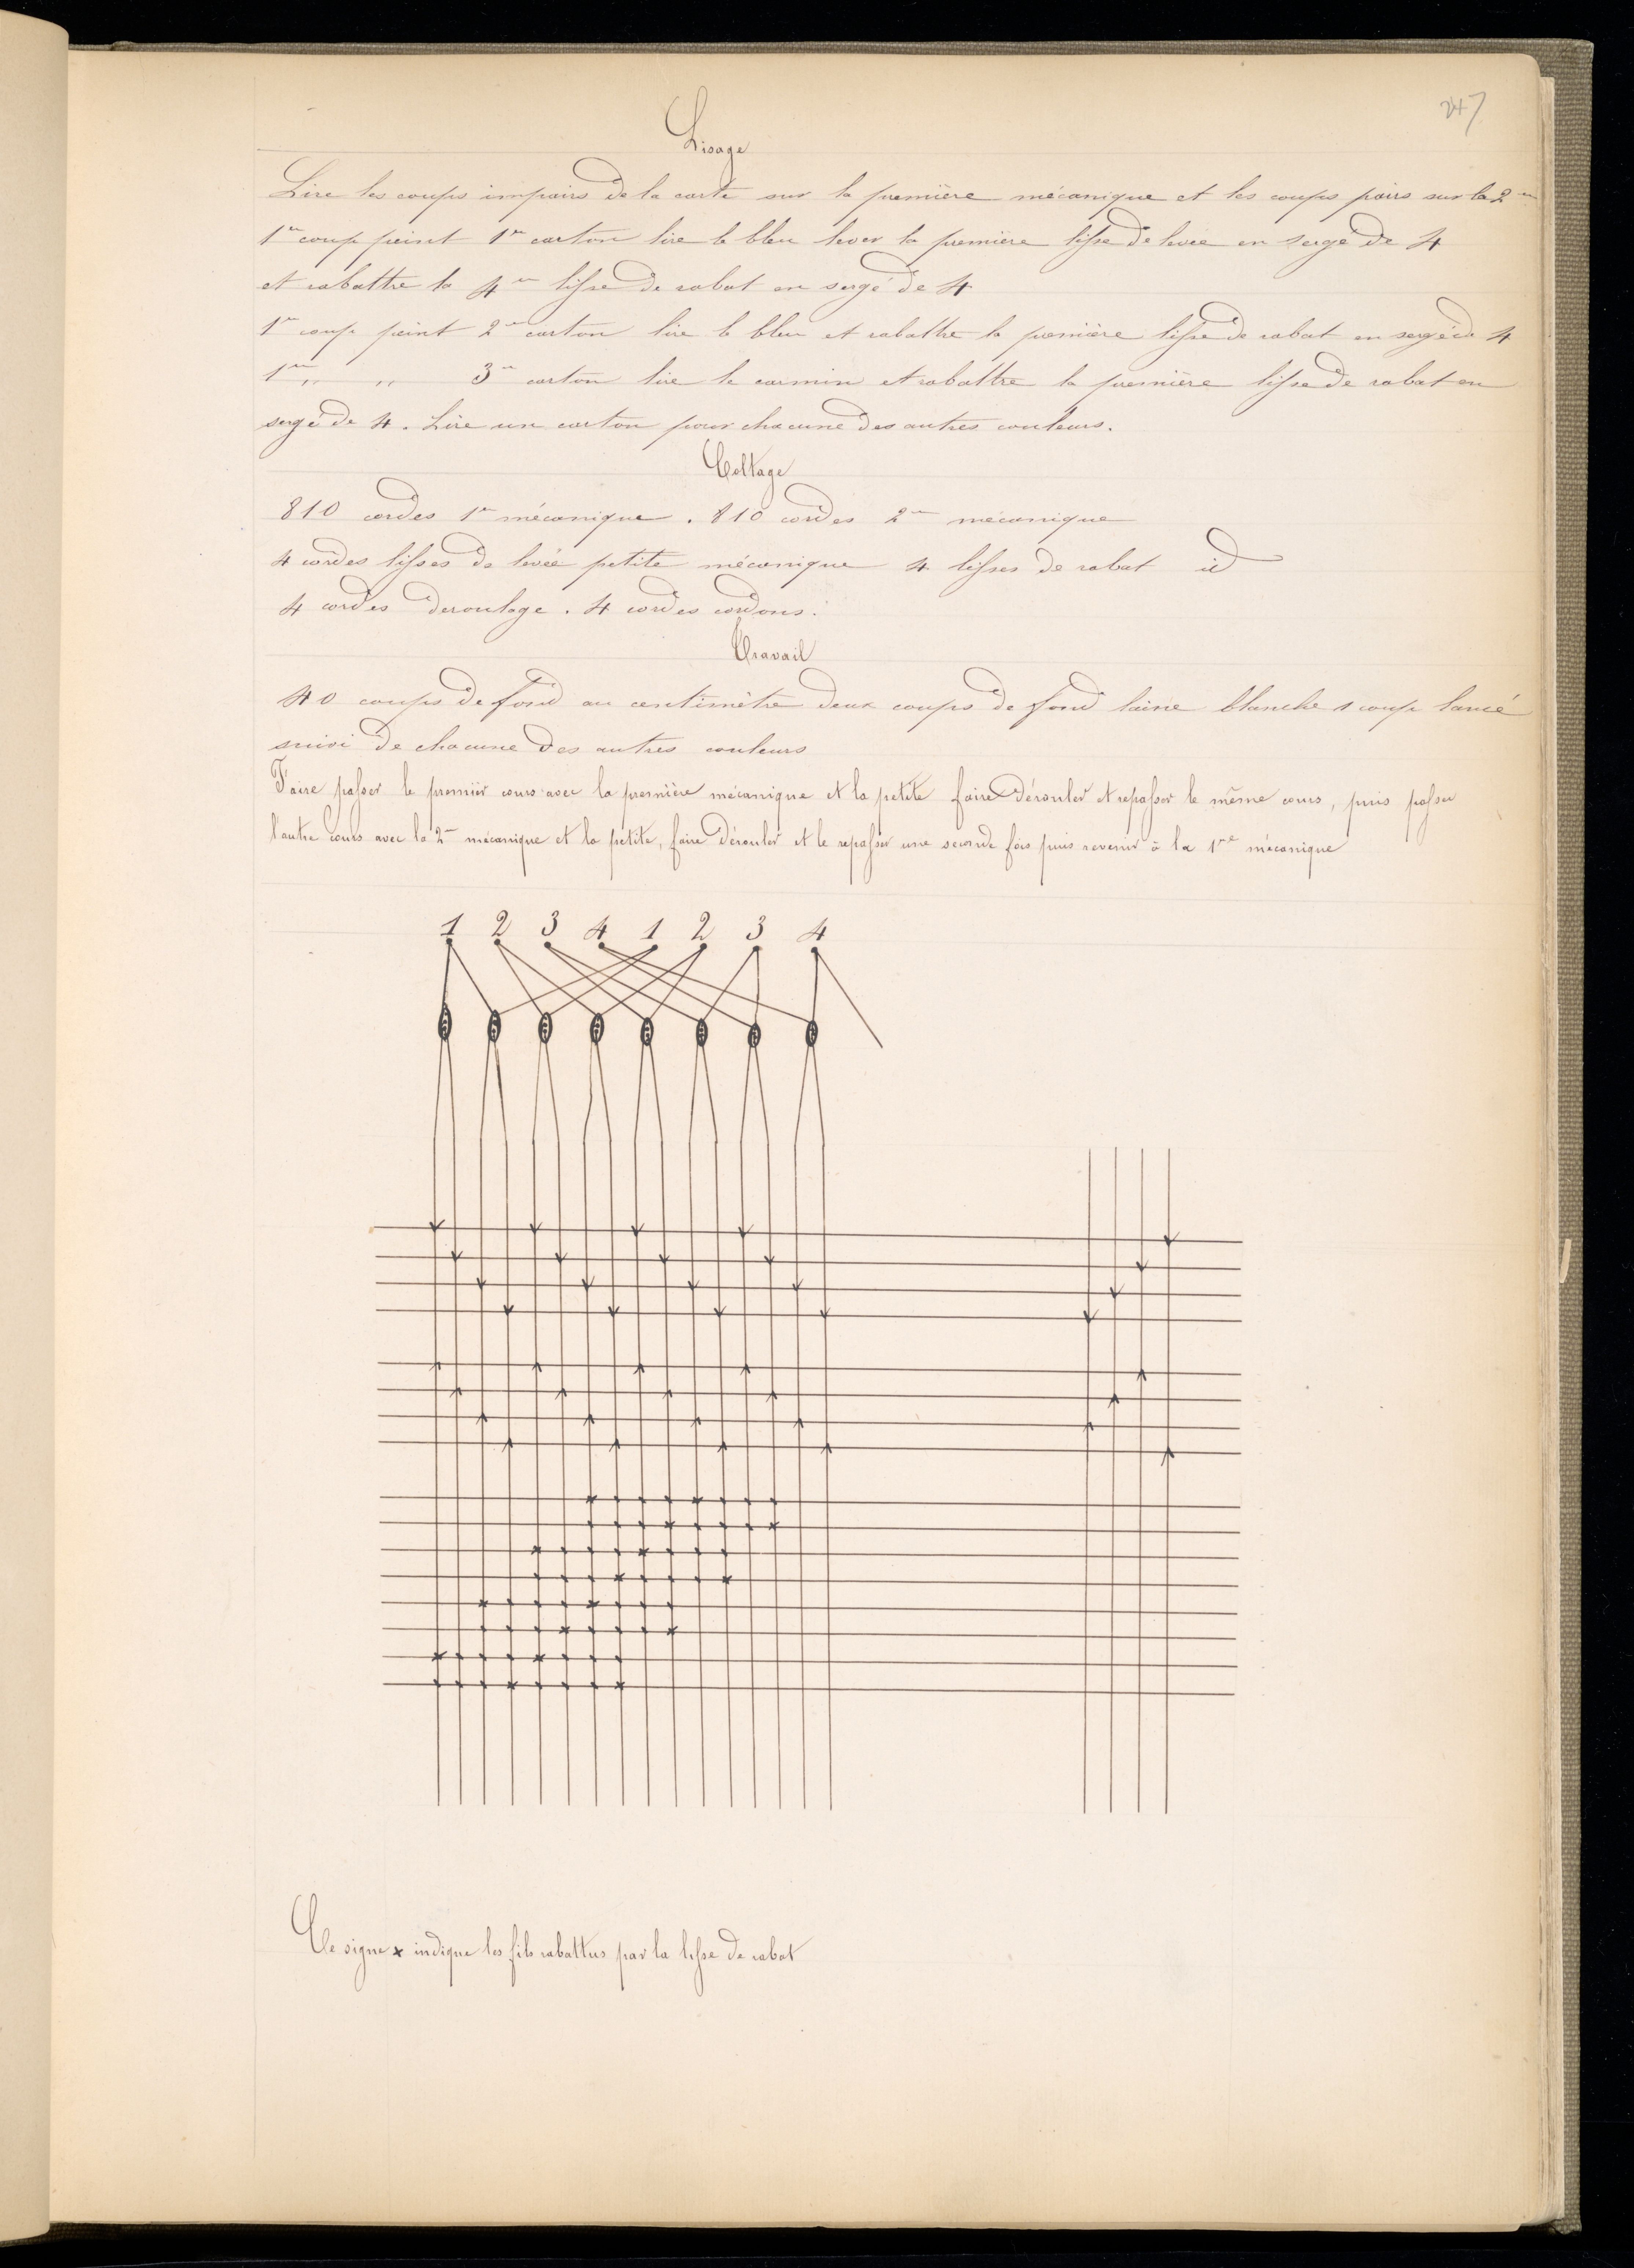 247
Lisage
Lire les coups impairs de la carte sur la première mécanique et les coups pairs sur la 2me
1er coup peint 1er carton lire le bleu lever la première lisse de levée en sergé de 4
et rabattre la 4me lisse de rabat en sergé de 4
1er coup peint 2me carton lire le bleu et rabattre la première lisse de rabat en sergé de 4
1er „ „ 3me carton lire le carmin et rabattre la première lisse de rabat en
sergé de 4. Lire un carton pour chacune des autres couleurs.
Coltage
810 cordes 1re mécanique. 810 cordes 2me mécanique
4 cordes lisses de levée petite mécanique 4 lisses de rabat id
4 cordes deroulage. 4 cordes cordons.
Travail
40 coups de fond au centimètre deux coups de fond laine blanche 1 coup lancé
suivi de chacune des autres couleurs
Faire passer le premier cours avec la première mécanique et la petite faire dérouler et repasser le même cours, puis passer
l'autre cours avec la 2me mécanique et la petite, faire dérouler et le repasser une seconde fois puis revenir à la 1re mécanique
1 2 3 4 1 2 3 4
Ce signe x indique les fils rabattus par la lisse de rabat